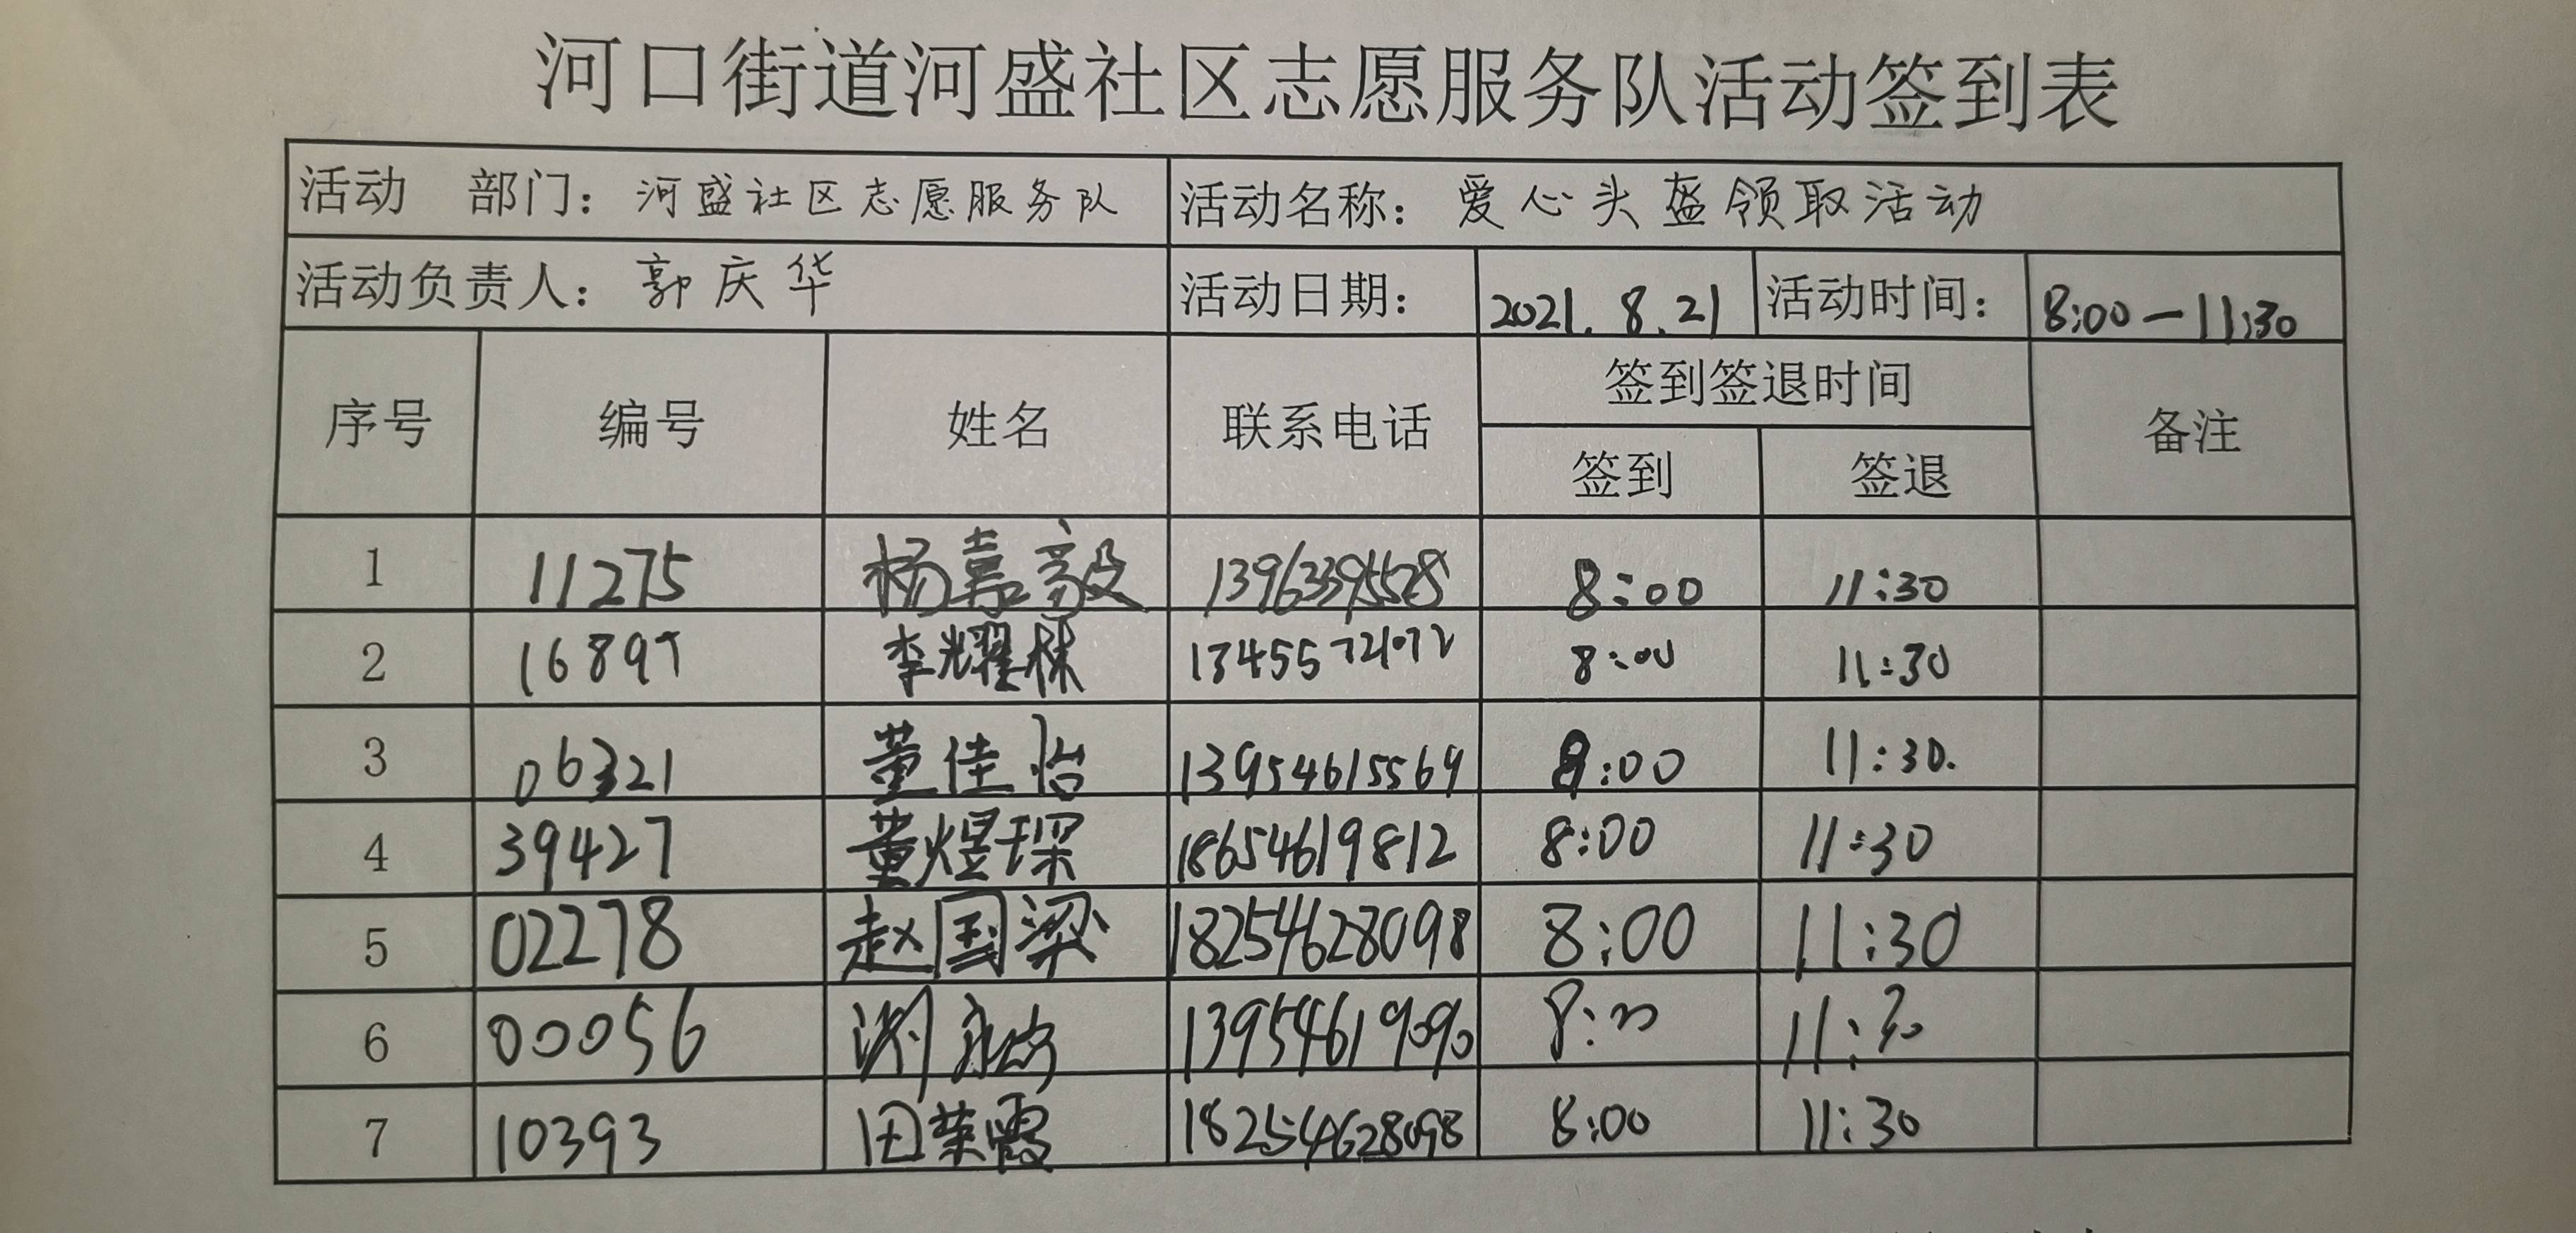 河口街道河盛社区志愿服务队活动签到表
活动 部门：河盛社区志愿服务队 活动名称：爱心头盔领取活动
活动负责人：郭庆华 活动日期： 2021.8.21 活动时间： 8:00—11:30
序号 编号 姓名 联系电话 签到签退时间 备注
签到 签退
1 11275 杨嘉毅 13963395528 8:00 11:30
2 16897 李耀林 13455721072 8:00 11:30
3 06321 董佳怡 13954615569 8:00 11:30.
4 39427 董煜琛 18654619812 8:00 11:30
5 02278 赵国梁 18254628098 8:00 11:30
6 00056 13954619090 8:00 11:30
7 10393 田荣霞 18254628098 8:00 11:30